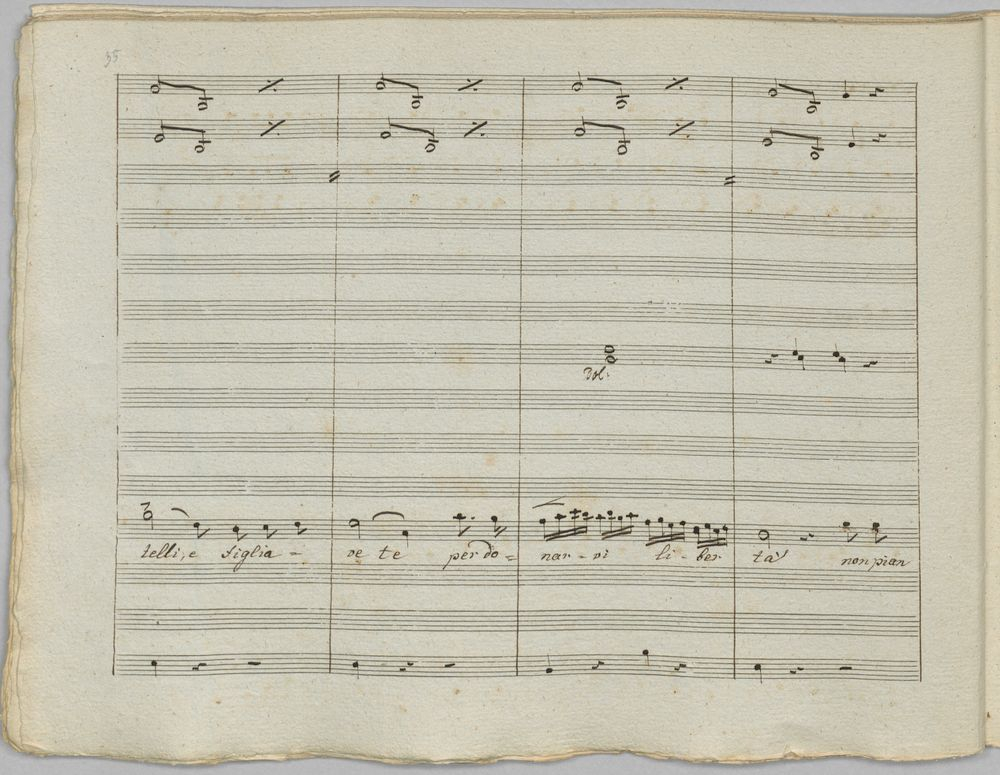 35
Vol:
telli, e figlia - re te perdo = nar - vi li - ber tà non pian